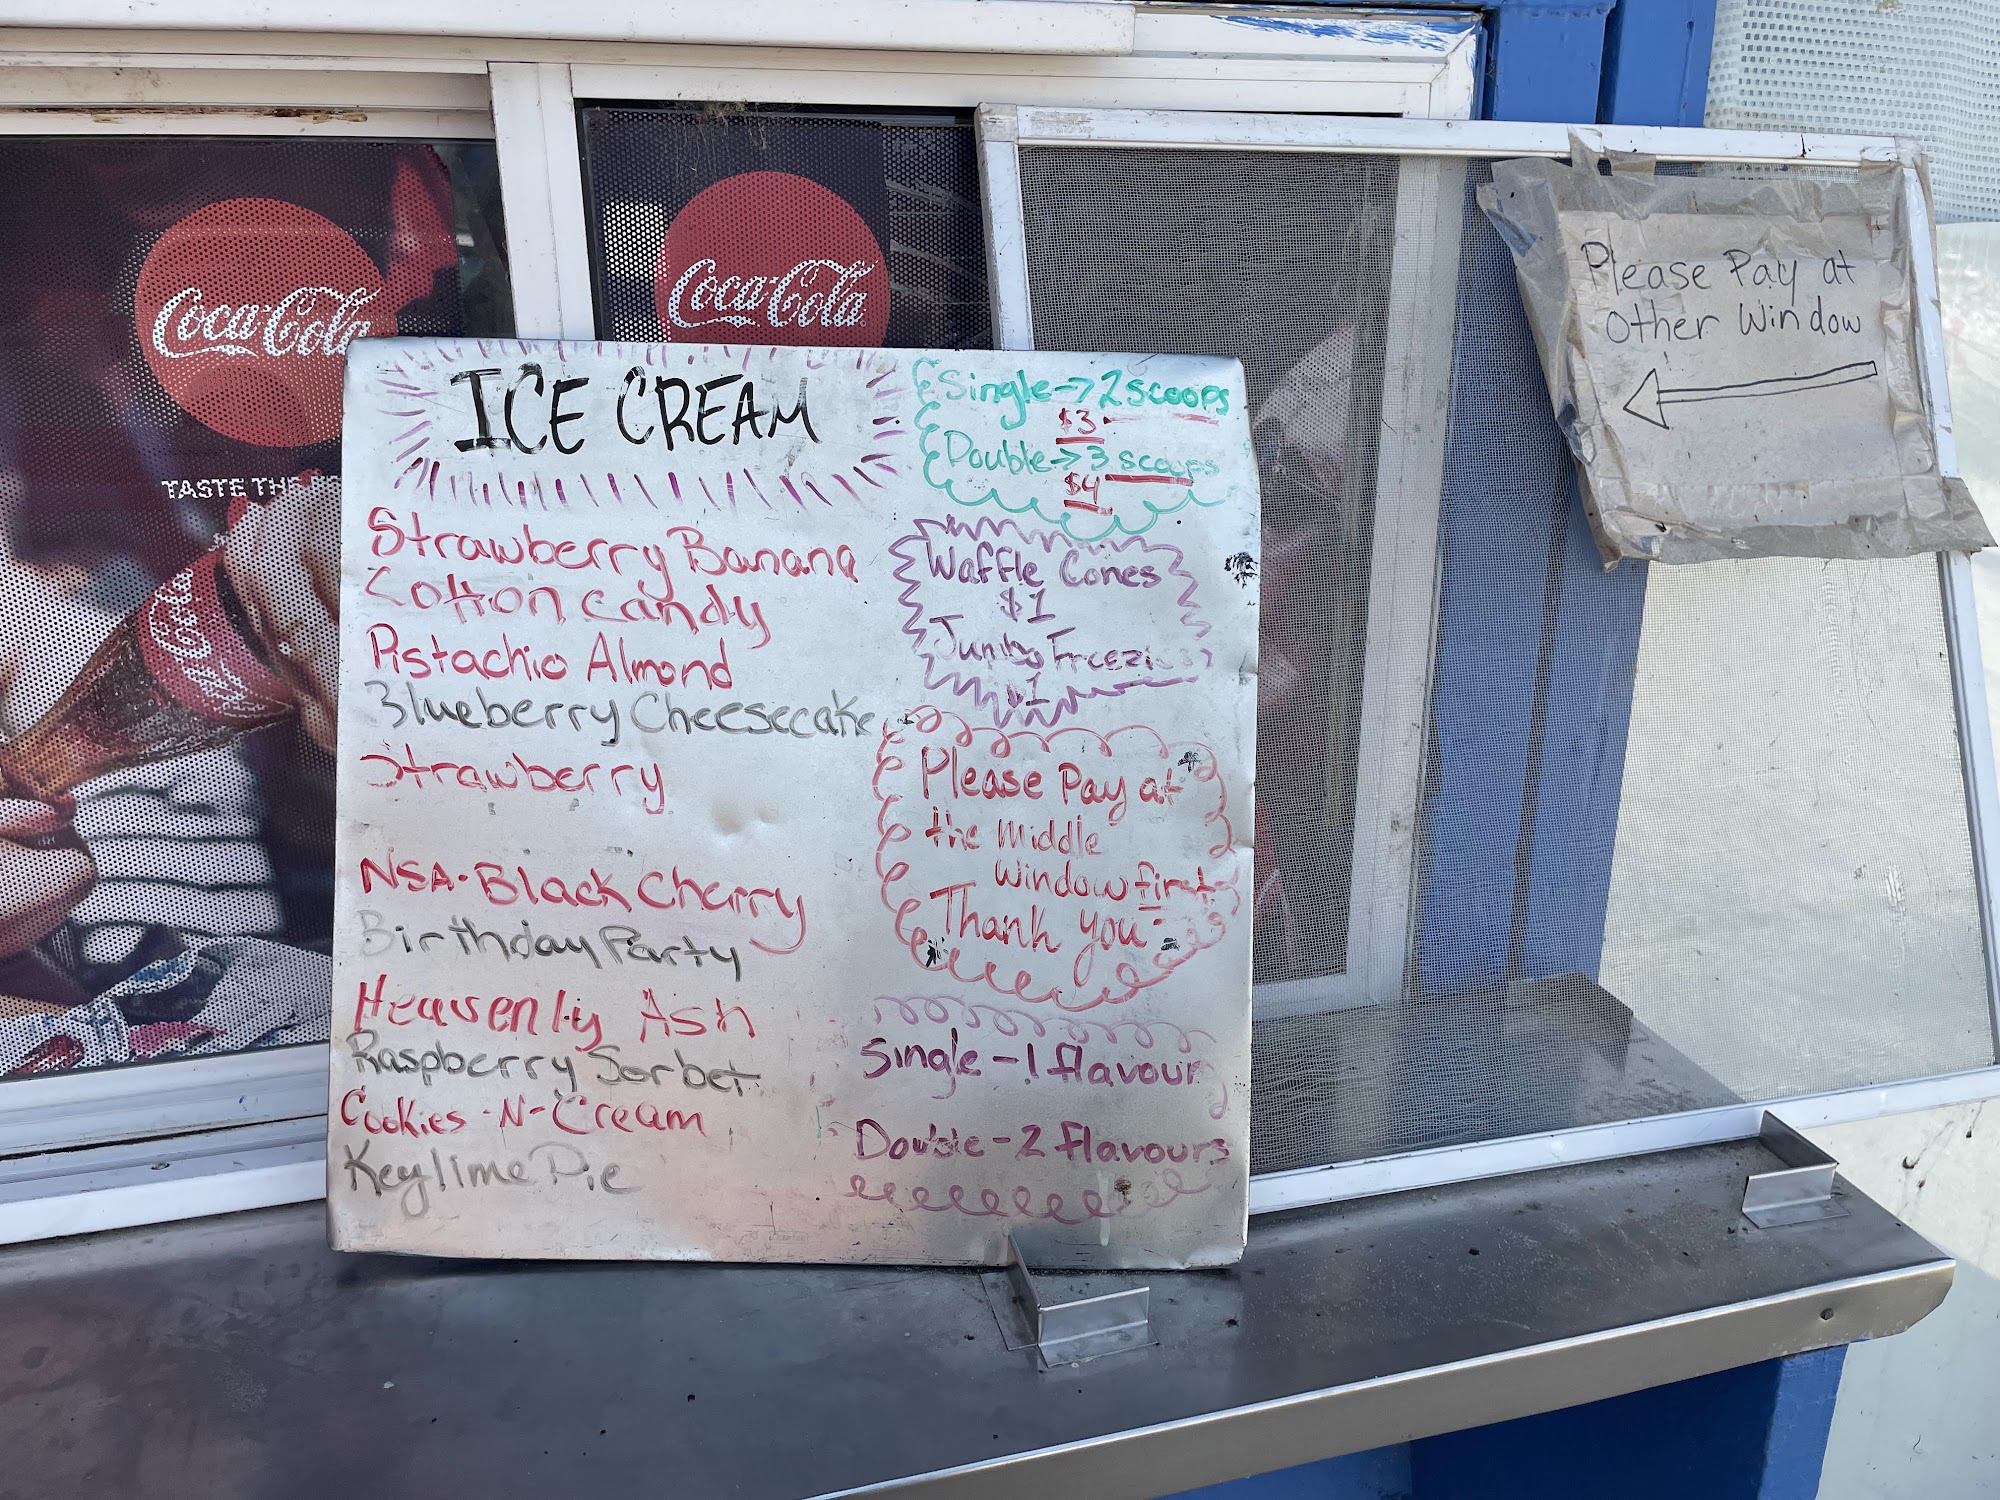 Coca-Cola
Coca-Cola
TASTE THE
Coca-Cola
ICE CREAM
Strawberry Banana
Cotton Candy
Pistachio Almond
Blueberry Cheesecake
Strawberry
NSA-Black Cherry
Birthday Party
Heavenly Hash
Raspberry Sorbet
Cookies-N-Cream
Keylime Pie
Single → 2 scoops
$3
Double → 3 scoops
$4
Waffle Cones
$1
Jumbo Freezies
$1
Please Pay at
the Middle
Window first
Thank you
Single - 1 flavour
Double - 2 flavours
Please Pay at
other Window